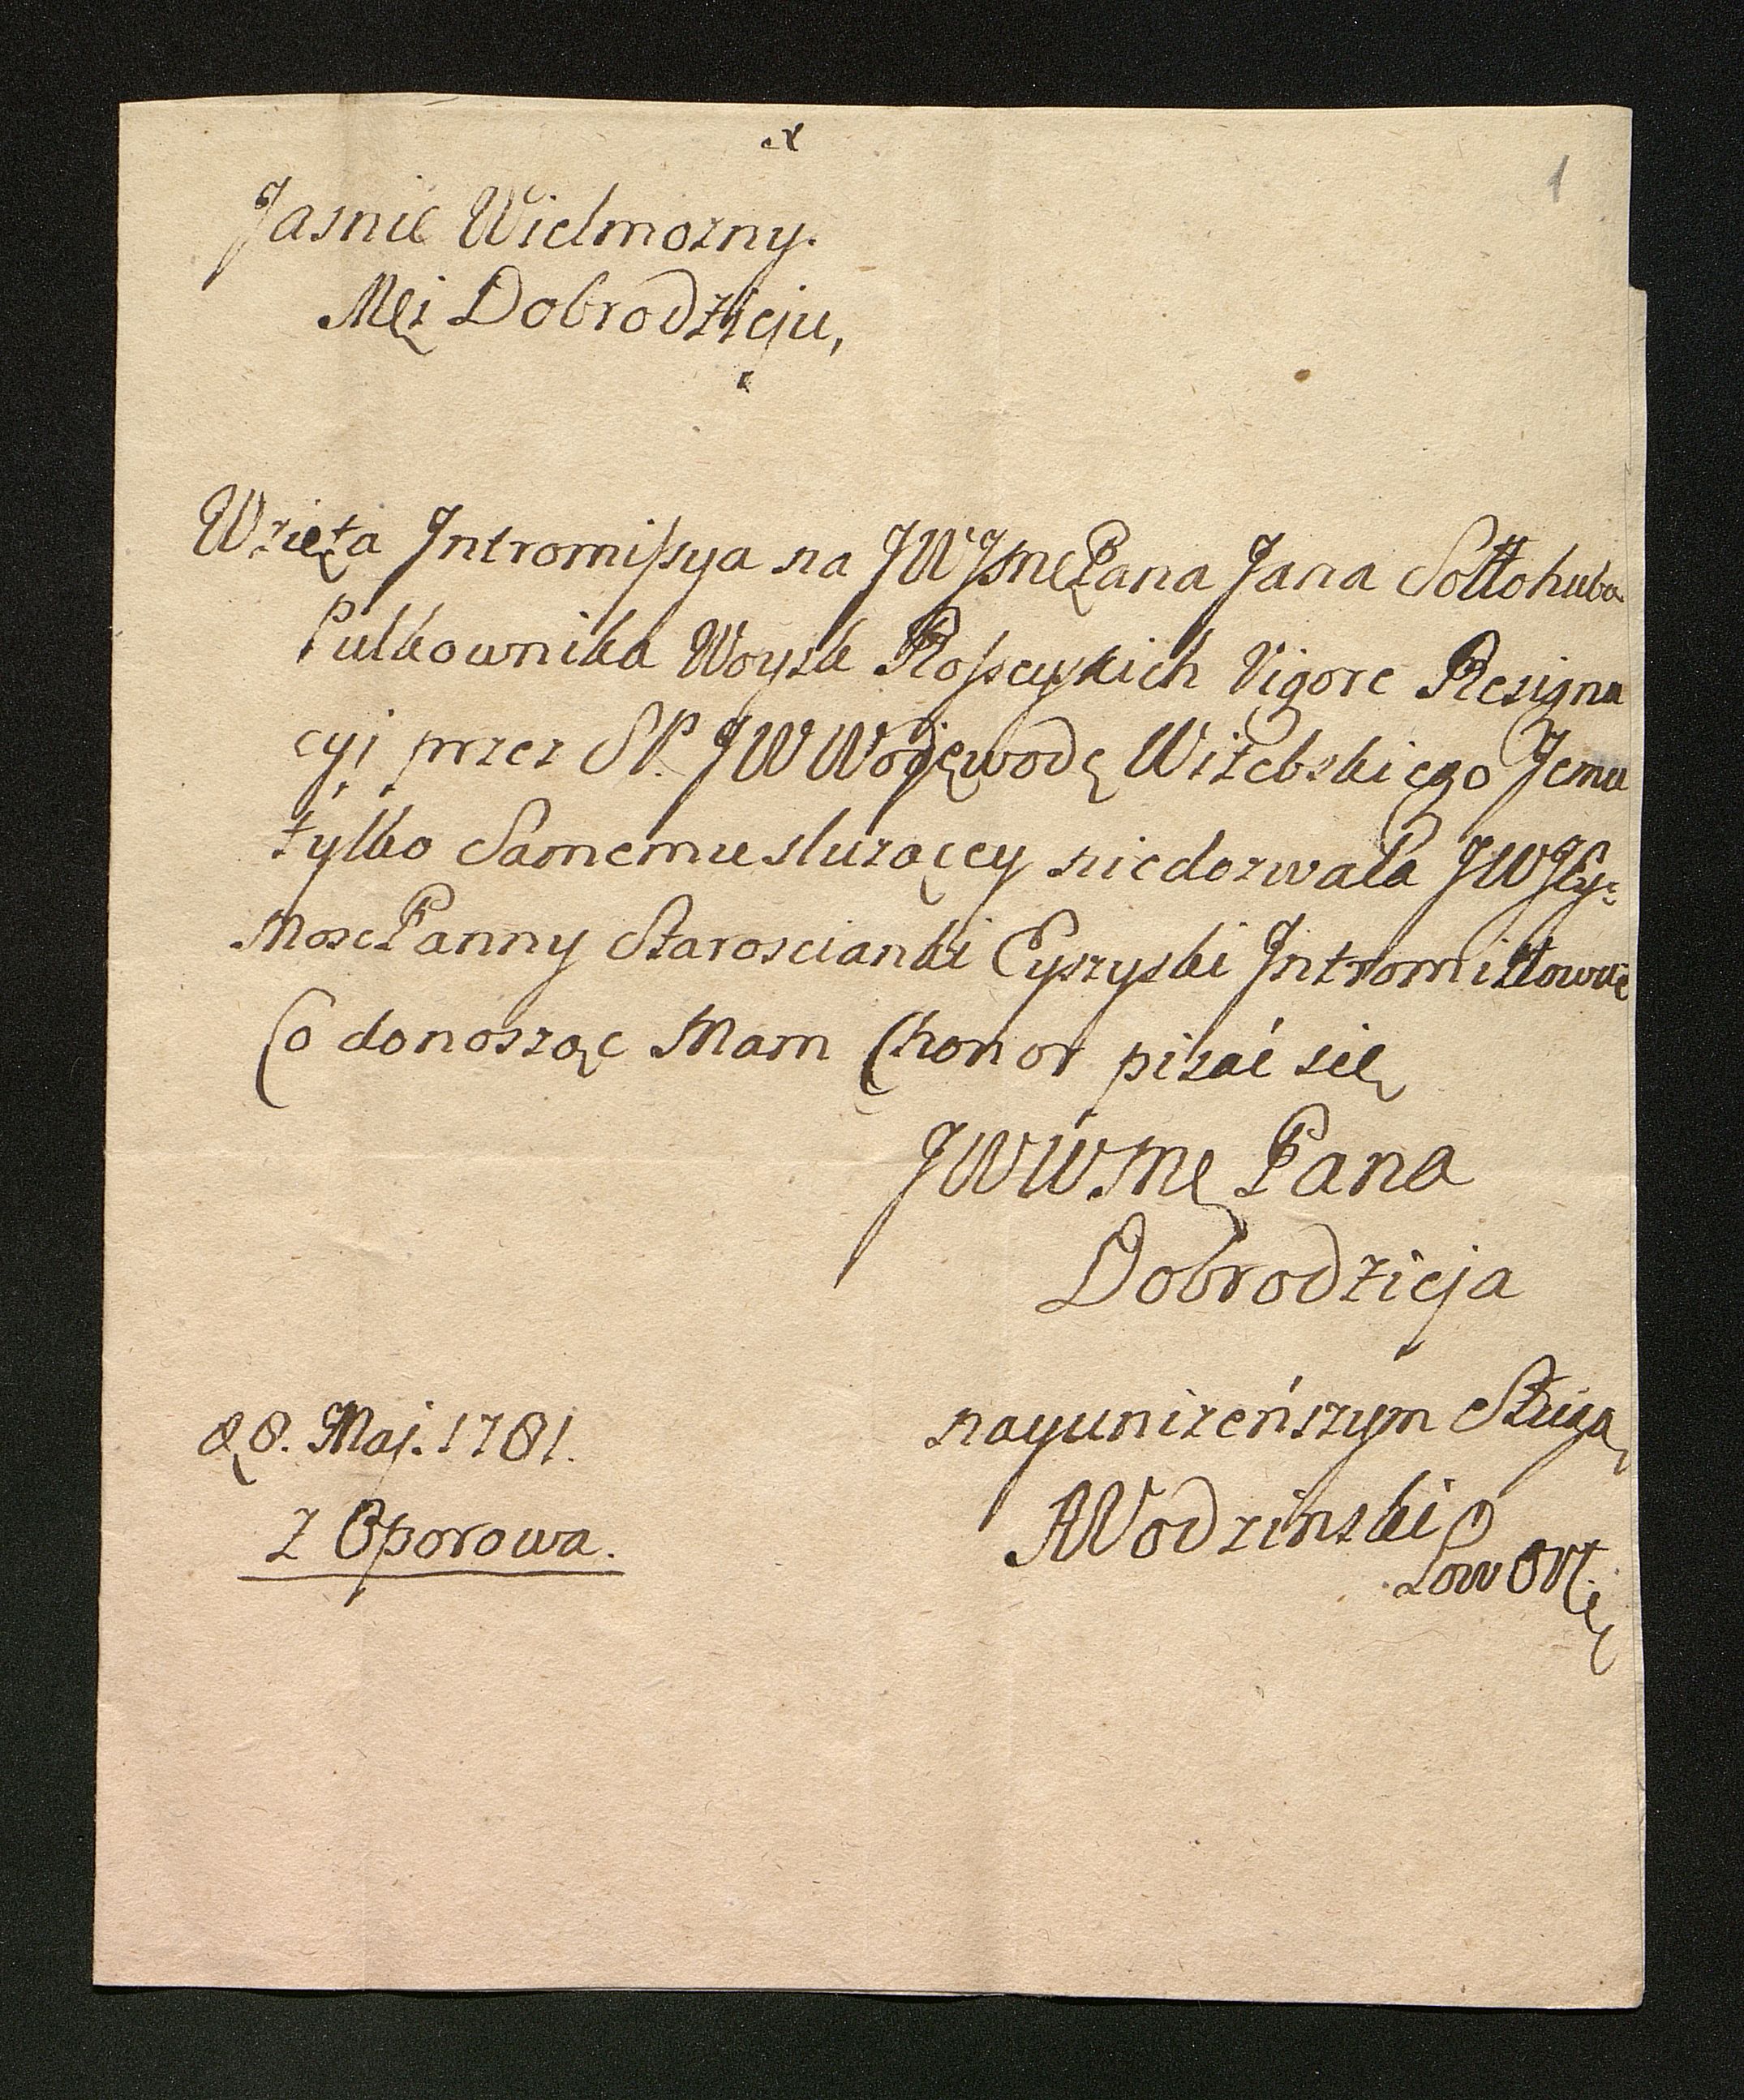 1
Jasnie Wielmozny.
Mći Dobrodzieju,
Wzięta Intromissya na JWJmćPana Jana Sołłohuba
Pulkownika Woysk Rossyiskich Vigore Resigna
cyi przez SP. JW Wojewodę Witebskiego Jemu
tylko Samemu sluzącey niedozwala JWJey:
MoscPanny Staroscianki Eyszyski Intromittowac
Co donosząc Mam Chonor pisać się
JWWMć Pana
Dobrodzieja
nayunizeńszym Sługą
28. Maj. 1781.
AWodzinski
Z Oporowa.
Low Orł.